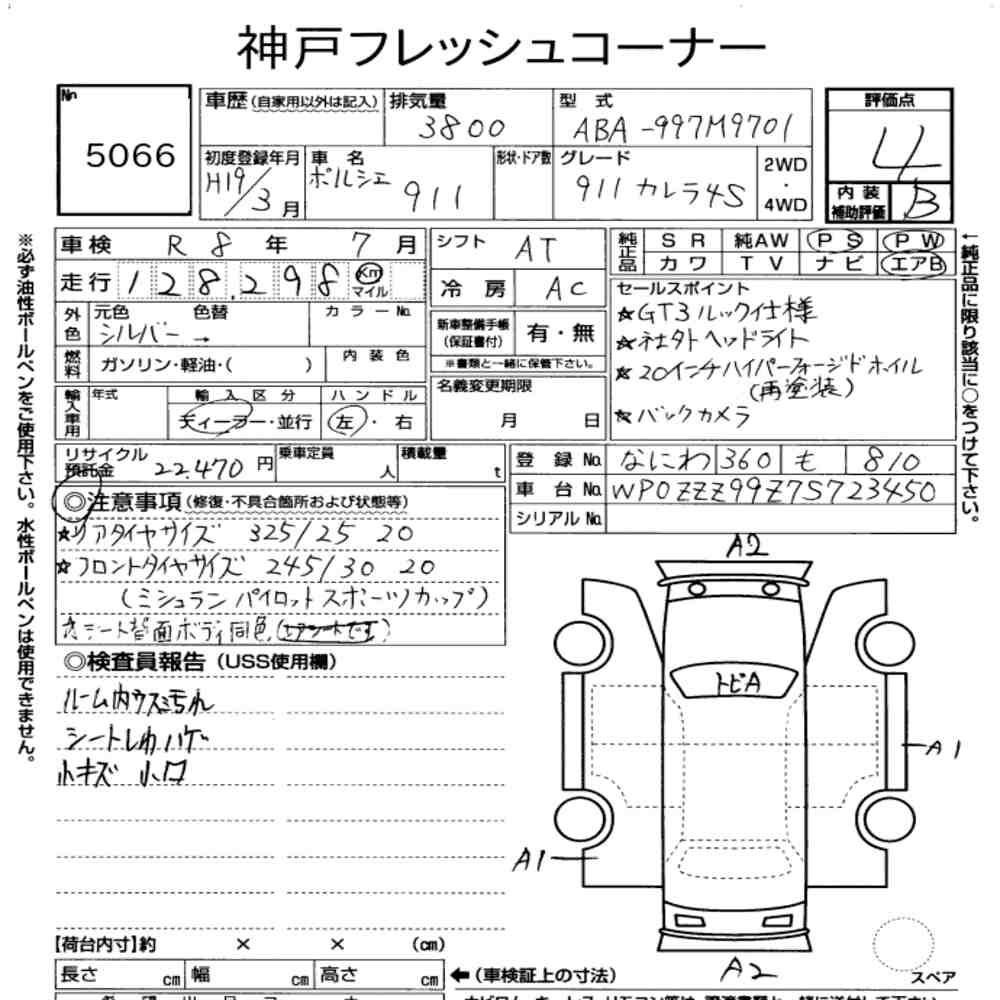 神戸フレッシュコーナー
No. 5066
車歴(自家用以外は記入) 排気量 3800 型式 ABA-997M9701
初度登録年月 H19/3月 車名 ポルシェ 911 形状・ドア数 グレード 911 カレラ4S 2WD・4WD
評価点 4
内装補助評価 B
車検 R 8年 7月
走行 128,298 Km マイル
外色 元色 シルバー → 色替 カラーNo.
燃料 ガソリン・軽油・( ) 内装色
輸入車用 年式 輸入区分 ディーラー・並行 ハンドル 左・右
シフト AT
冷房 AC
新車整備手帳(保証書付) 有・無
※書類と一緒に保管下さい。
名義変更期限 月 日
純正品 SR 純AW PS PW
カワ TV ナビ エアB
セールスポイント
☆GT3ルック仕様
☆社外ヘッドライト
☆20インチハイパーフォージドホイル
(再塗装)
☆バックカメラ
リサイクル預託金 22.470円 乗車定員 人 積載量 t
登録No. なにわ 360 も 810
車台No. WP0ZZZ99Z7S723450
シリアルNo.
◎注意事項(修復・不具合箇所および状態等)
☆リアタイヤサイズ 325/25 20
☆フロントタイヤサイズ 245/30 20
(ミシュラン パイロットスポーツカップ)
シート背面ボディ同色
◎検査員報告(USS使用欄)
ルーム内ウスミ汚れ
シートしわハゲ
小キズ 小凹
A2
トビA
A1
A1
A2
スペア
【荷台内寸】約 × × (cm)
長さ cm 幅 cm 高さ cm ←(車検証上の寸法)
※必ず油性ボールペンをご使用下さい。水性ボールペンは使用できません。
←純正品に限り該当に○をつけて下さい。